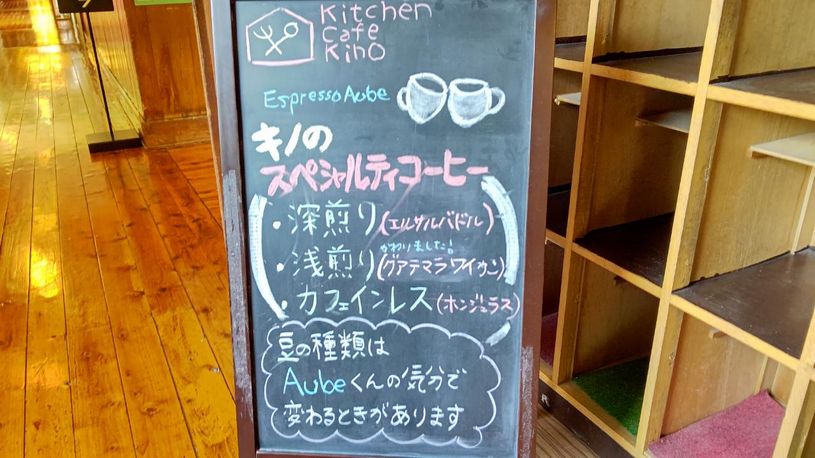 Kitchen
Cafe
Kino
Espresso Aube
キノの
スペシャルティコーヒー
・深煎り(エルサルバドル)
かわりました!
・浅煎り(グアテマラ ワイカン)
・カフェインレス(ホンジュラス)
豆の種類は
Aubeくんの気分で
変わるときがあります